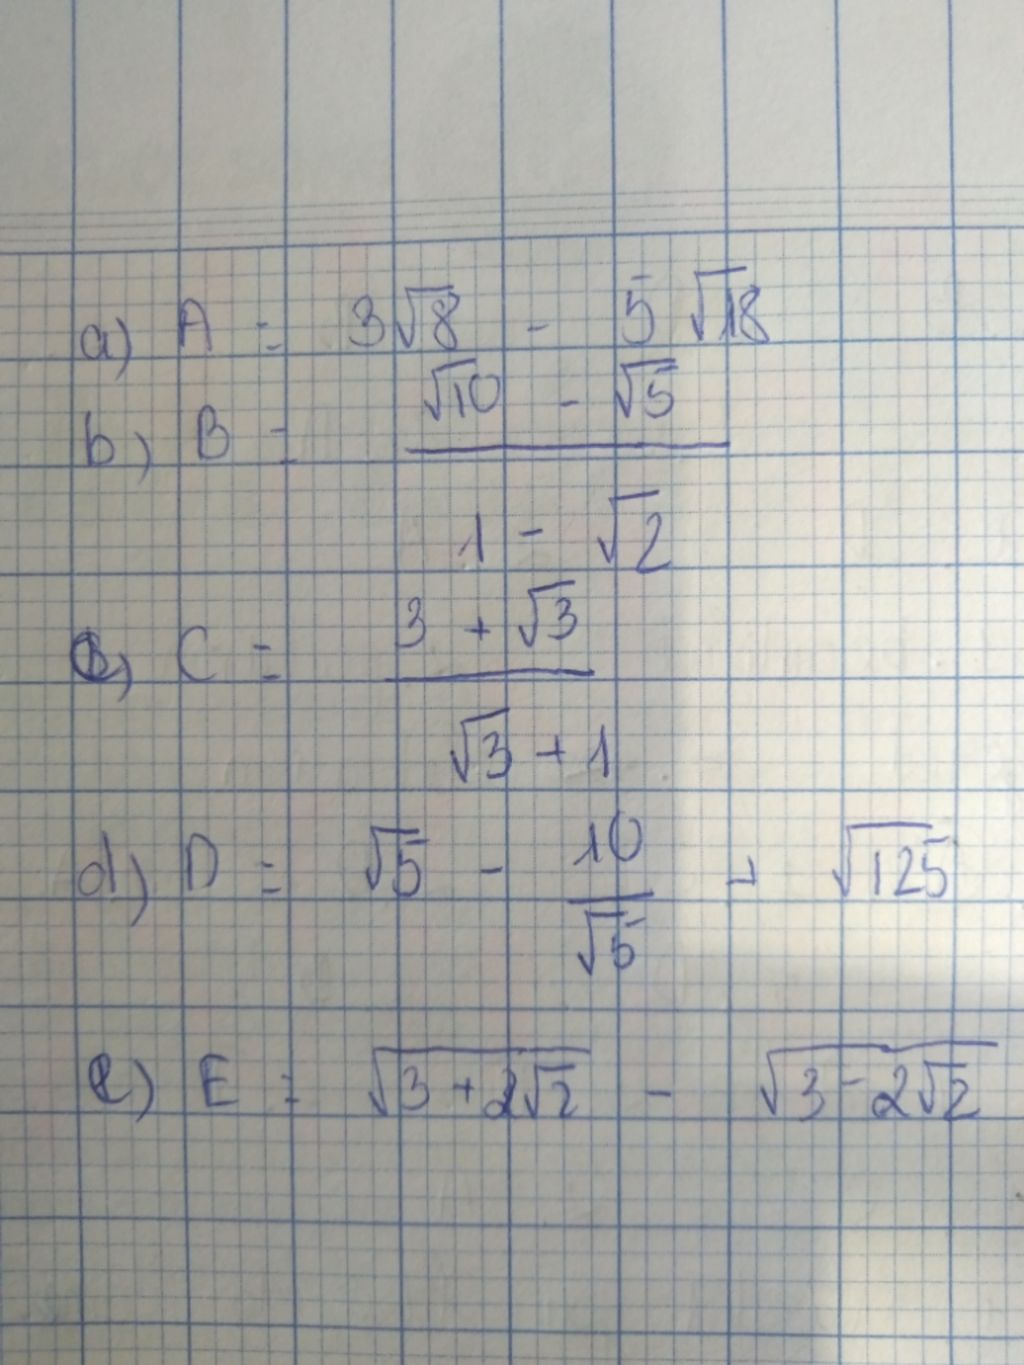 a) A = 3√8 - 5√18
b) B = (√10 - √5) / (1 - √2)
c) C = (3 + √3) / (√3 + 1)
d) D = √5 - 10/√5 + √125
e) E = √(3 + 2√2) - √(3 - 2√2)